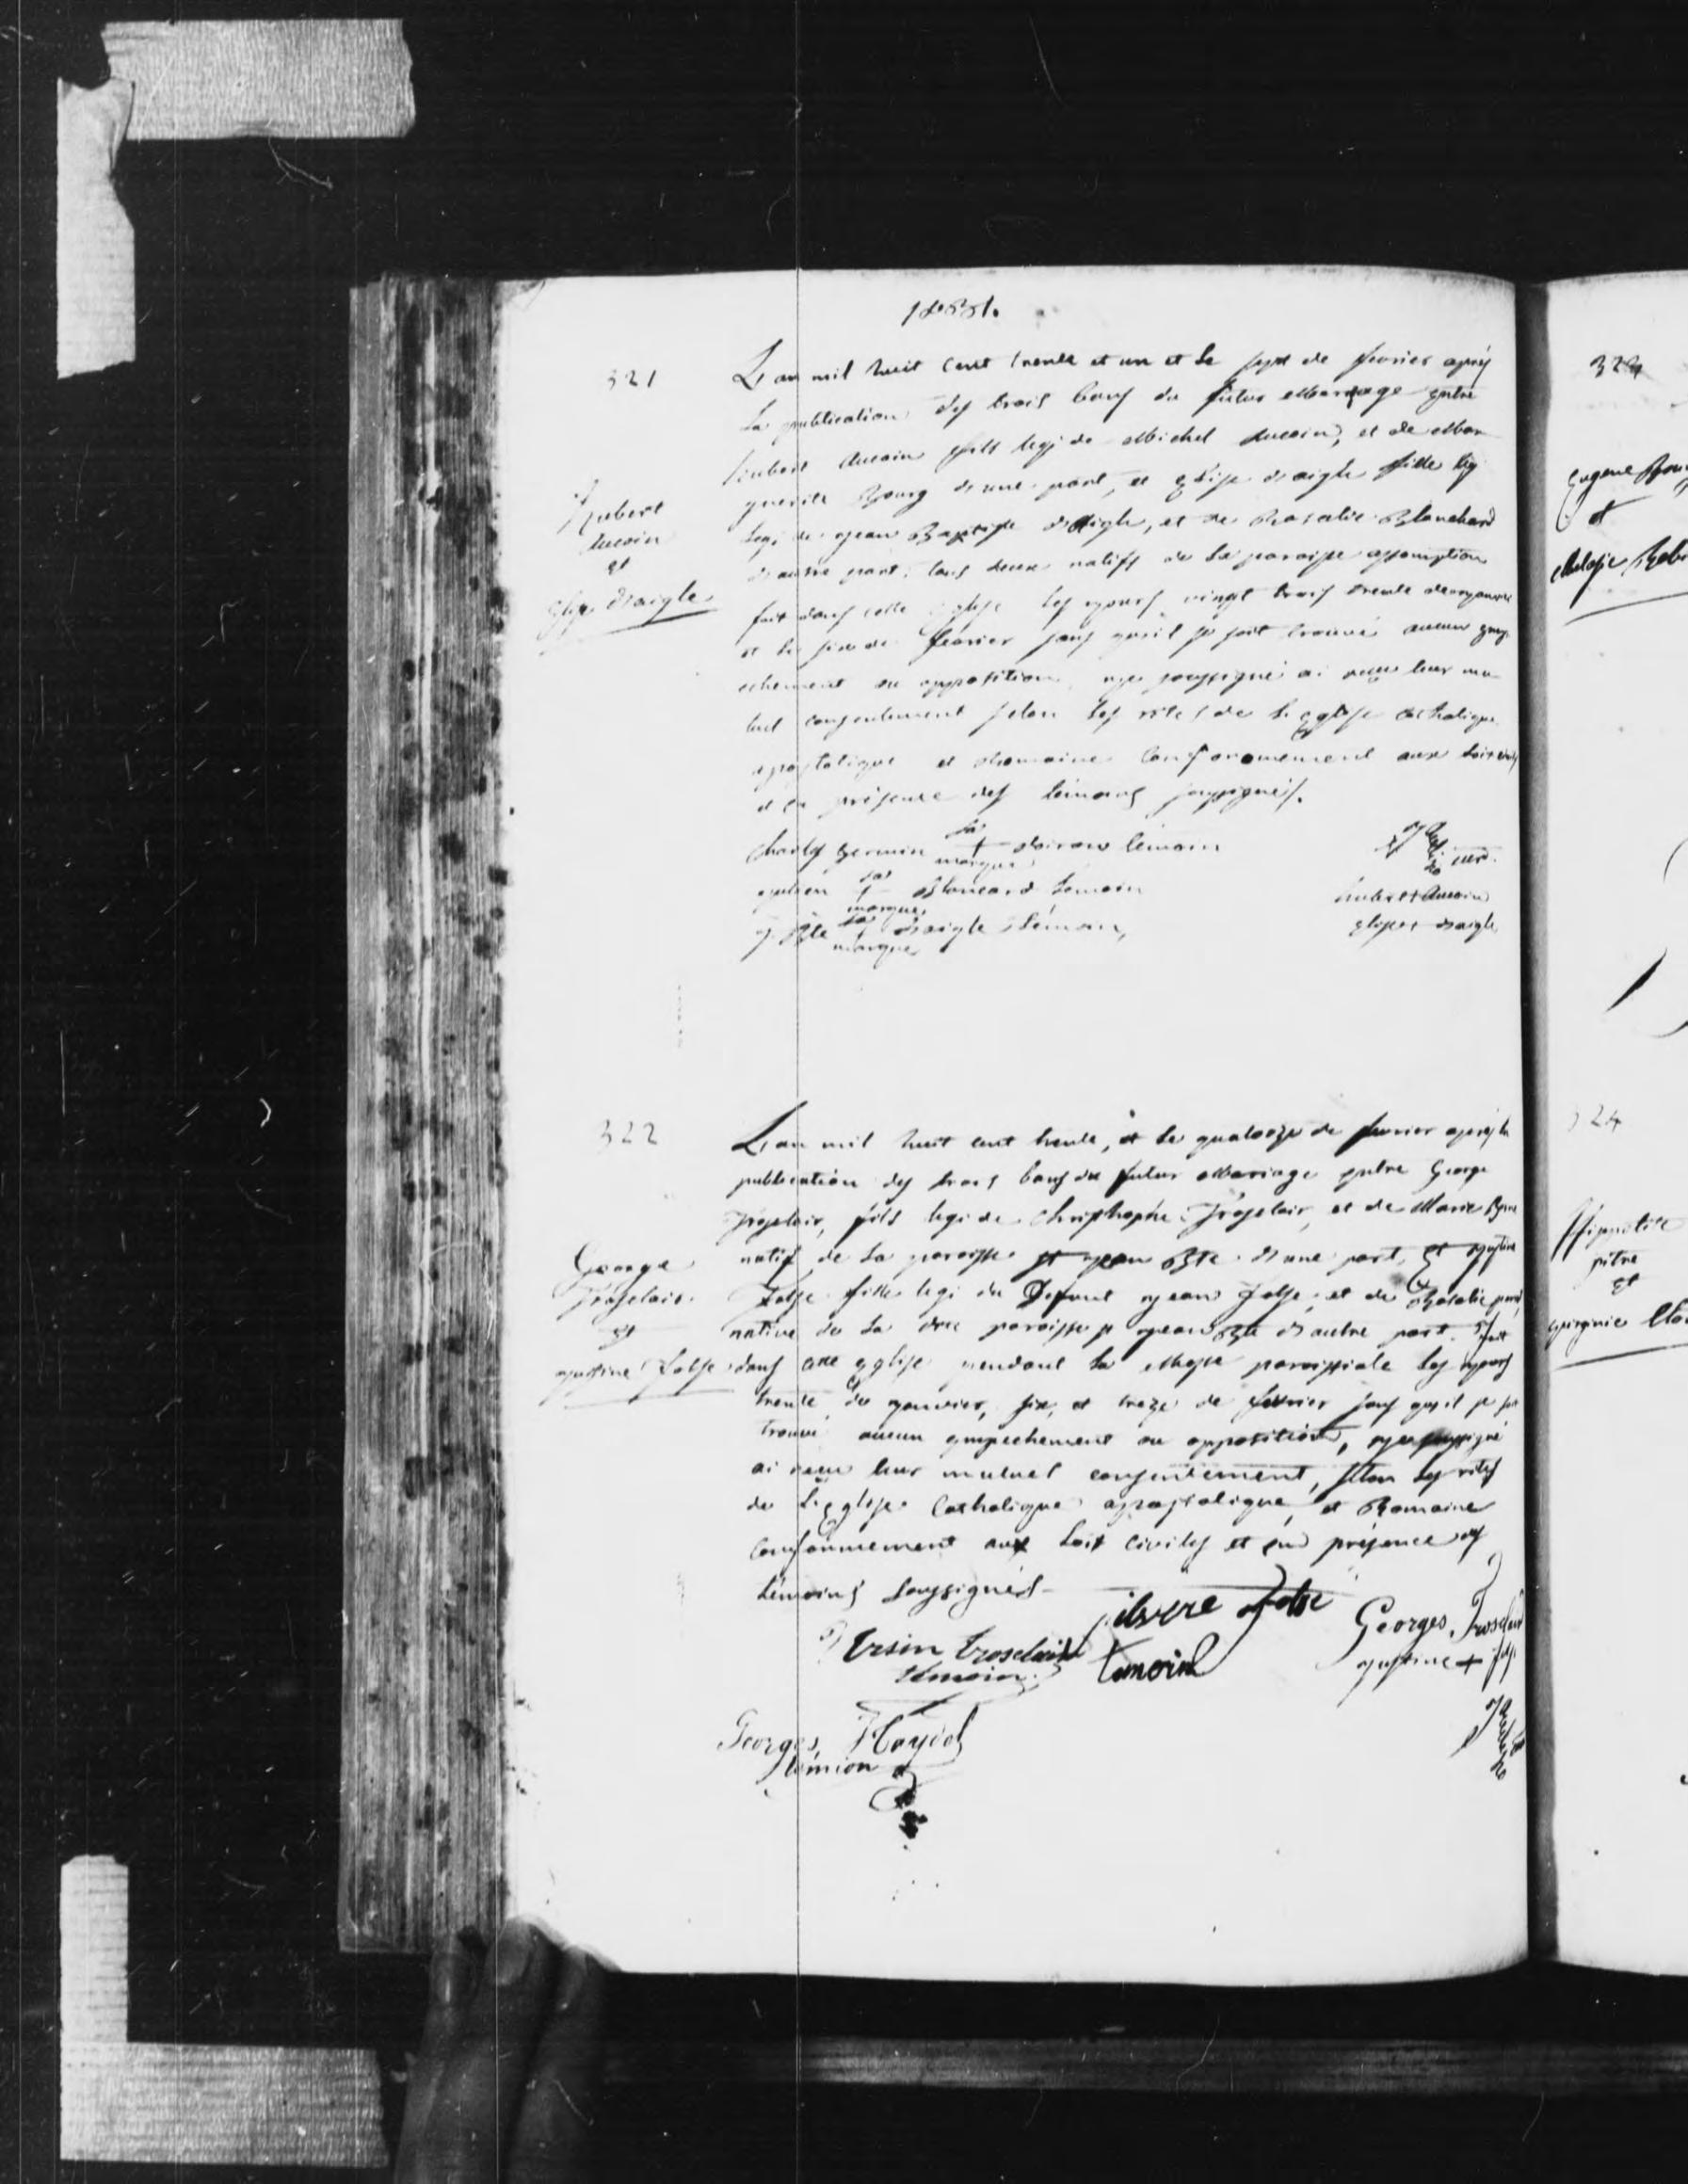 1831.
321
L'an mil huit cent trente et un et le sept de fevrier après
La publication des trois bans du futur Mariage entre
hubert Aucoin fils legi de Michel Aucoin, et de Mar-
guerite Bourg d'une part, et Elise daigle fille leg
legi de jean Baptiste daigle, et de Rosalie Blanchard
d'autre part. tous deux natifs de La paroisse assomption
Hubert
Aucoin
et
Elise Daigle
fait dans cette eglise les jours vingt trois trente de janvier
et le six de fevrier sans qu'il se soit trouvé aucun emp-
echement ou opposition, je soussigné ai recu leur mu-
tuel consentement selon les rites de L'Eglise catholique
apostolique et Romaine Conformement aux loix civ
et en présence des témoins soussignés.
Charles germin sa + marque doiron témoin
julien sa + marque Blancard témoin
j. Bte sa + marque daigle témoin,
curé.
hubert + Aucoin
elise + daigle
322
L'an mil huit cent trente, et le quatorze de fevrier après la
publication des trois bans du futur Mariage entre George
Troselair, fils legi de Christophe Troselair, et de Marie
natif de La paroisse st jean Bte d'une part, Et justine
folse fille legi du Defunt jean folse, et de Rosalie
native de La dite paroisse st jean Bte d'autre part. fait
George
Troselair
et
justine folse
dans cette Eglise pendant La Messe paroissiale les jours
trente de janvier, six, et treze de fevrier sans qu'il se soit
trouvé aucun empechement ou opposition, je soussigné
ai recu leur mutuel consentement, selon les rites
de L'Eglise Catholique apostolique, et Romaine
conformement aux loix civiles et en présence des
témoins soussignés
Ursin troselair
témoin
folse
temoin
Georges Trosclair
justine + folse
Georges, Haydel
témion
Eugene
et
Melasie
324
Hippolite
pitre
et
virginie